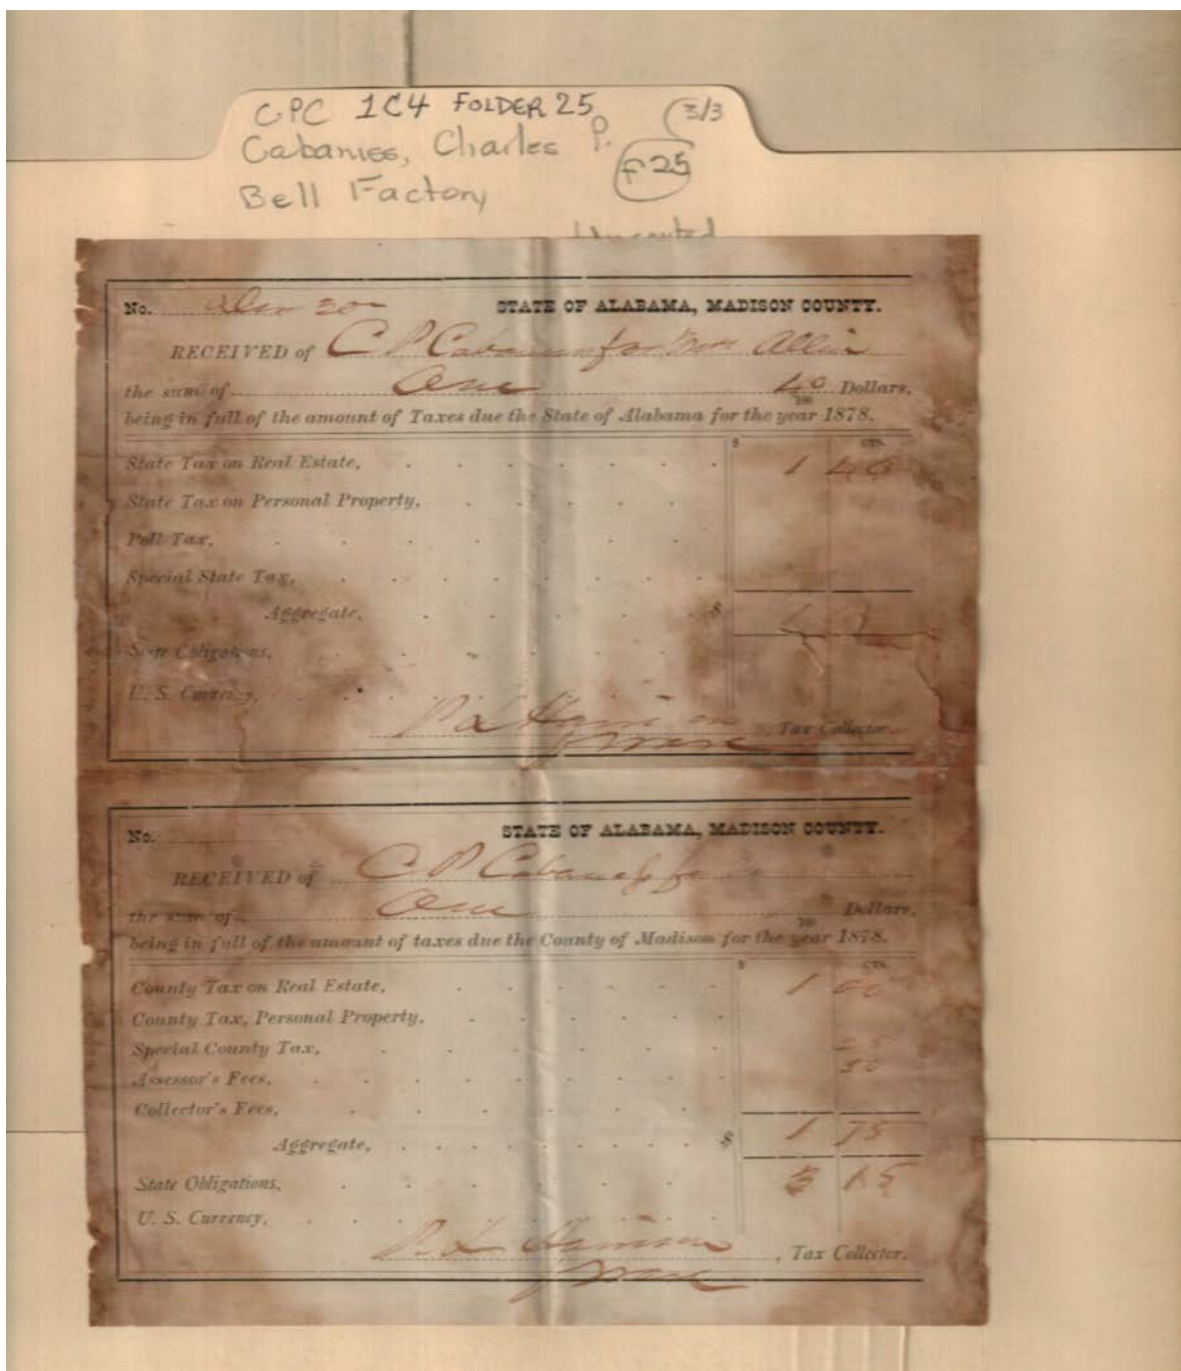 CPC 1C4 FOLDER 25 3/3
Cabaniss, Charles P. F25
Bell Factory
No. STATE OF ALABAMA, MADISON COUNTY.
RECEIVED of C P Cabaniss for Mrs
the sum of One 40/100 Dollars,
being in full of the amount of Taxes due the State of Alabama for the year 1878.
$ CTS.
State Tax on Real Estate, 1 40
State Tax on Personal Property,
Poll Tax,
Special State Tax,
Aggregate, $
State Obligations,
U. S. Currency,
, Tax Collector.
No. STATE OF ALABAMA, MADISON COUNTY.
RECEIVED of C P Cabaniss for
the sum of One 100 Dollars,
being in full of the amount of taxes due the County of Madison for the year 1878.
$ CTS.
County Tax on Real Estate, 1 00
County Tax, Personal Property,
Special County Tax, 25
Assessor's Fees, 50
Collector's Fees,
Aggregate, $ 1 75
State Obligations, 3 15
U. S. Currency,
, Tax Collector.